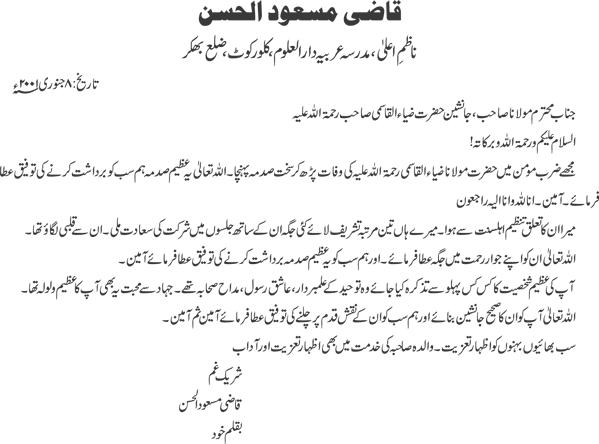 قاضی مسعود الحسن
ناظمِ اعلیٰ، مدرسہ عربیہ دارالعلوم، کلورکوٹ، ضلع بھکر
تاریخ: ۸ جنوری ۲۰۰۱ء
جناب محترم مولانا صاحب، جانشین حضرت ضیاء القاسمی صاحب رحمۃ اللہ علیہ
السلام علیکم و رحمۃ اللہ و برکاتہ!
مجھے ضرب مؤمن میں حضرت مولانا ضیاء القاسمی رحمۃ اللہ علیہ کی وفات پڑھ کر سخت صدمہ پہنچا۔ اللہ تعالیٰ یہ عظیم صدمہ ہم سب کو برداشت کرنے کی توفیق عطا
فرمائے۔ آمین۔ انا للہ وانا الیہ راجعون
میرا ان کا تعلق تنظیم اہلسنت سے ہوا۔ میرے ہاں تین مرتبہ تشریف لائے کئی جگہ ان کے ساتھ جلسوں میں شرکت کی سعادت ملی۔ ان سے قلبی لگاؤ تھا۔
اللہ تعالیٰ ان کو اپنے جوار رحمت میں جگہ عطا فرمائے۔ اور ہم سب کو یہ عظیم صدمہ برداشت کرنے کی توفیق عطا فرمائے آمین۔
آپ کی عظیم شخصیت کا کس کس پہلو سے تذکرہ کیا جائے وہ توحید کے علمبردار، عاشق رسول، مداح صحابہ تھے۔ جہاد سے محبت یہ بھی آپ کا عظیم ولولہ تھا۔
اللہ تعالیٰ آپ کو ان کا صحیح جانشین بنائے اور ہم سب کو ان کے نقش قدم پر چلنے کی توفیق عطا فرمائے آمین ثم آمین۔
سب بھائیوں بہنوں کو اظہار تعزیت۔ والدہ صاحبہ کی خدمت میں بھی اظہار تعزیت اور آداب
شریک غم
قاضی مسعود الحسن
بقلم خود